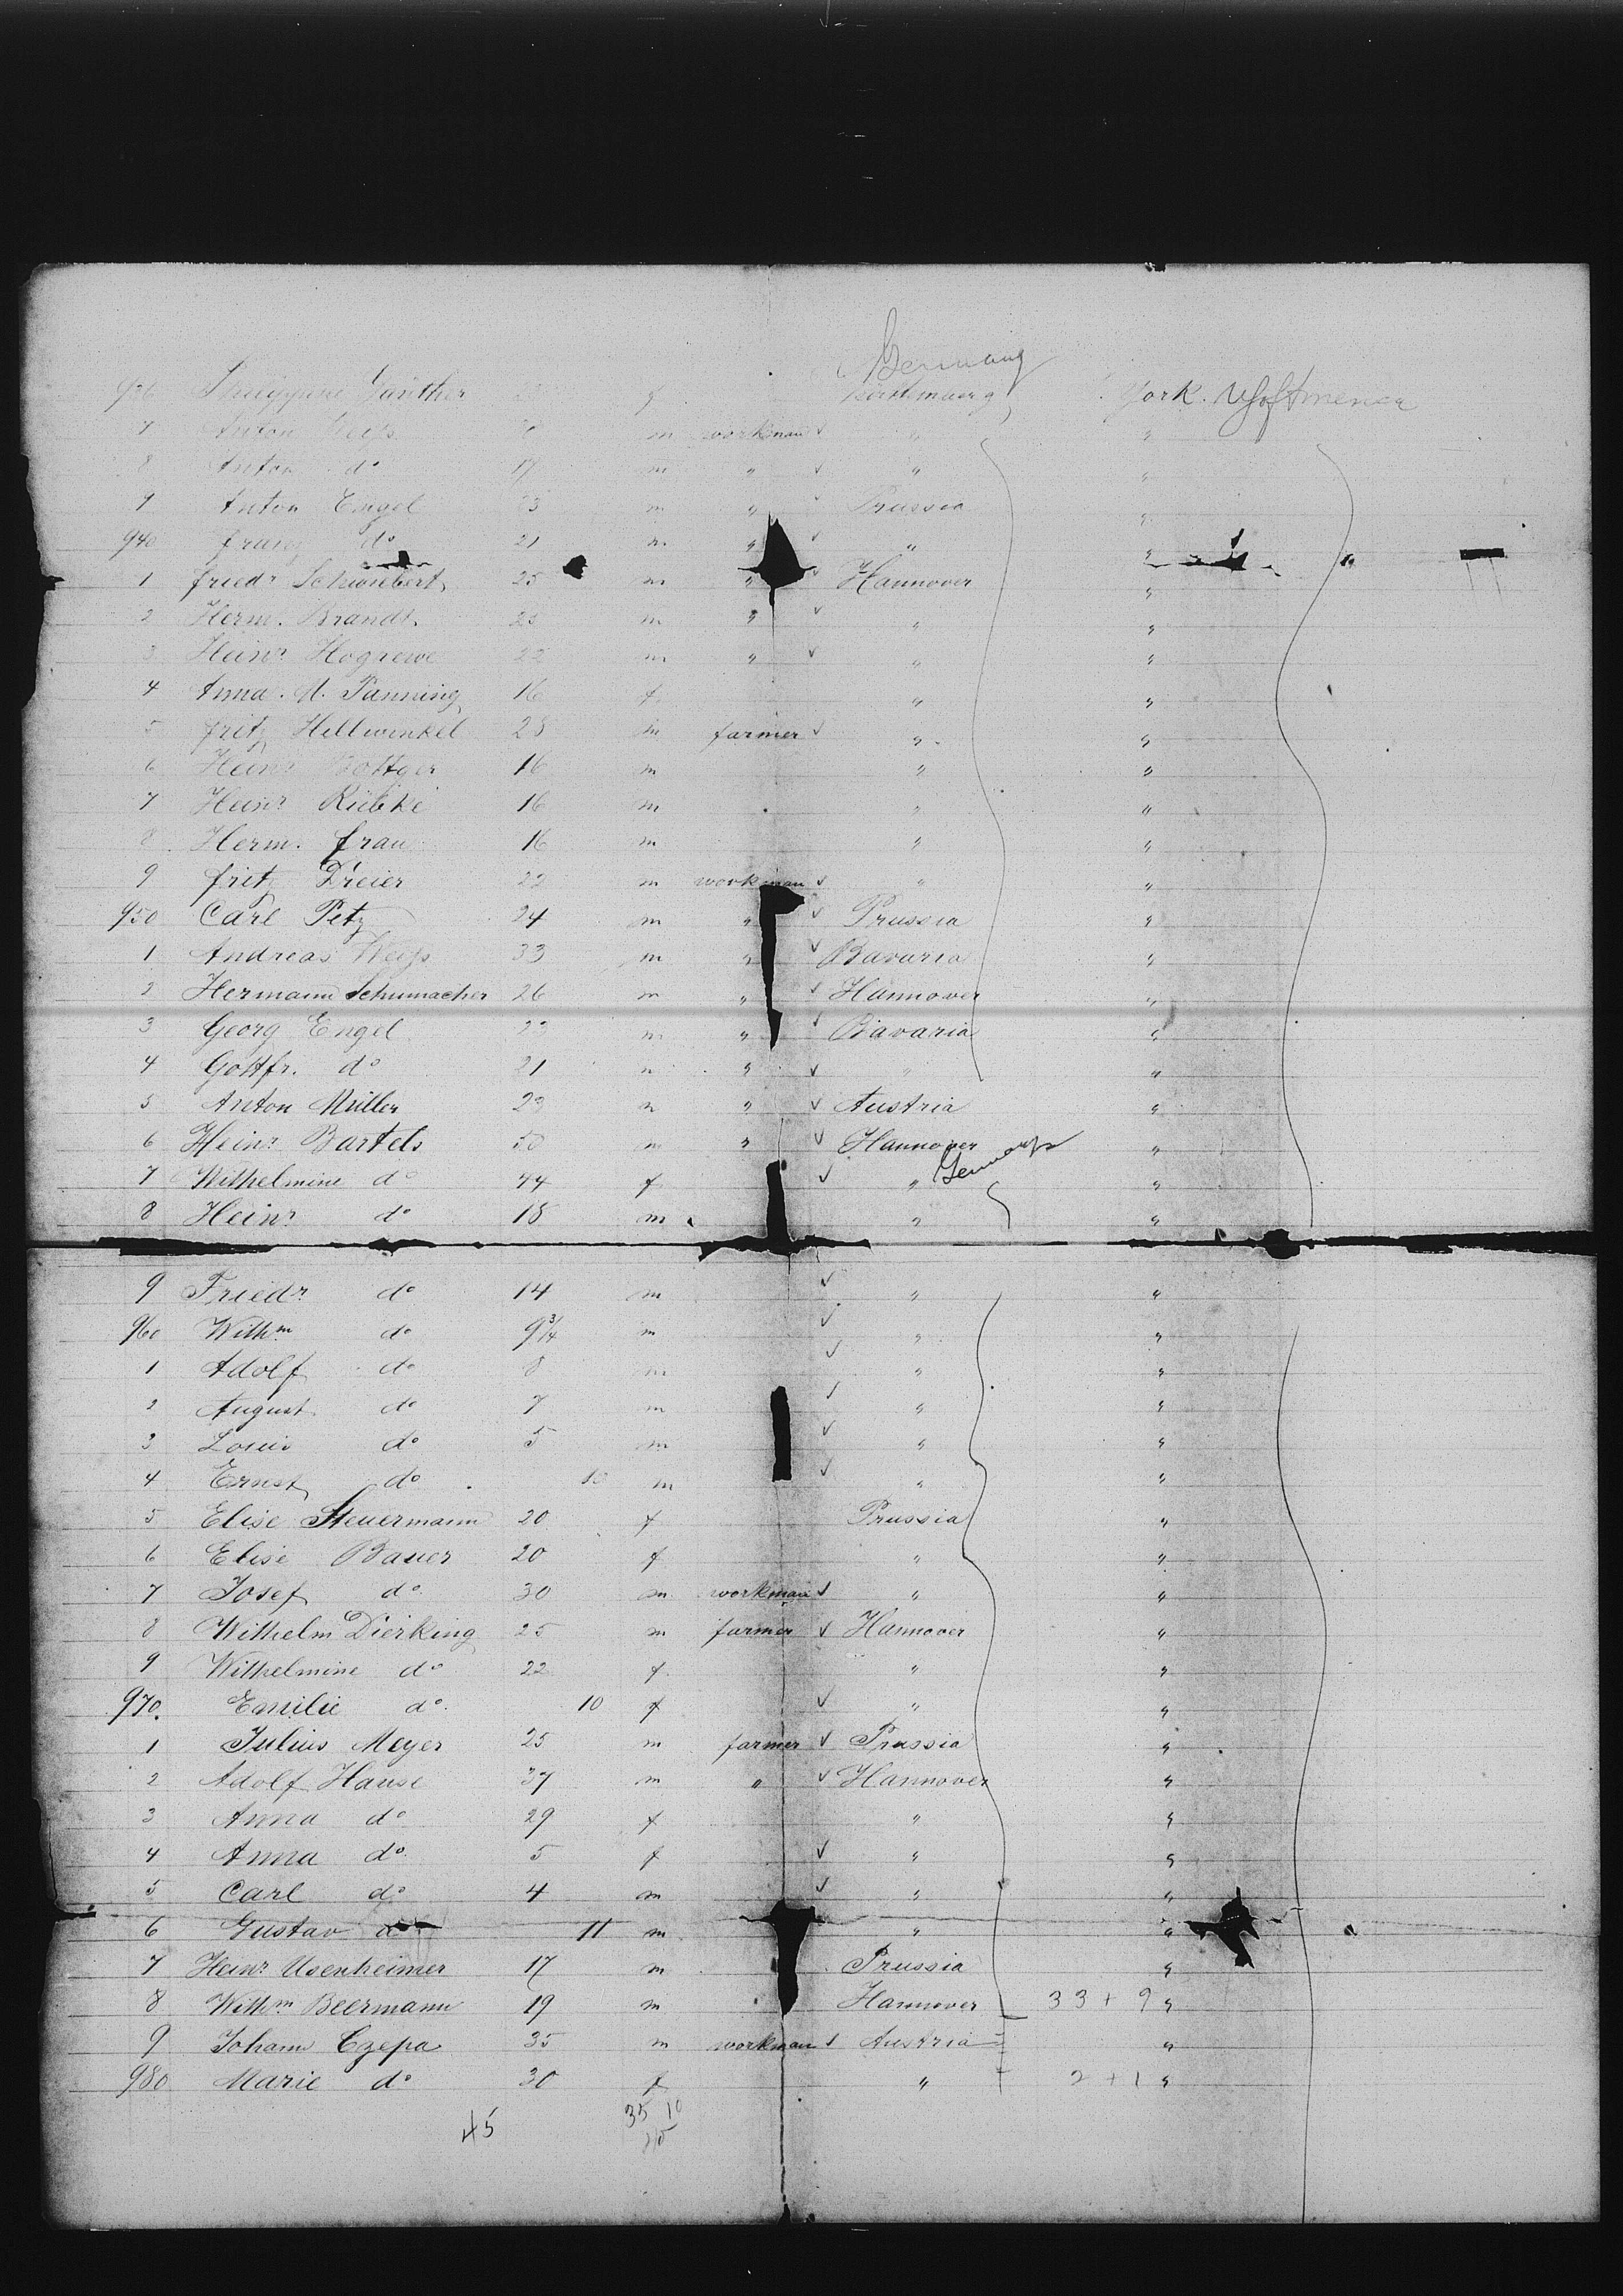 Germany
936 Philippine Günther f Würtemberg York. US of America
7 Anton Weiss m workman ✓ "
8 Anton do 17 m " ✓ " "
9 Anton Engel 23 m " ✓ Prussia "
940 franz do 21 m " ✓ " "
1 friedr Schwiebert 25 m " ✓ Hannover "
2 Herm. Brandt. 25 m " ✓ " "
3 Heinr Hogrewe 22 m " ✓ " "
4 Anna. M. Panning 16 f " "
5 fritz Hellwinkel 28 m farmer ✓ " "
6 Heinr Böttger 16 m " "
7 Heinr Rübke 16 m " "
8 Herm. frau 16 m " "
9 fritz Dreier 22 m workman ✓ " "
950 Carl Petz 24 m " ✓ Prussia "
1 Andreas Weiss 33 m " ✓ Bavaria "
2 Hermann Schumacher 26 m " ✓ Hannover "
3 Georg Engel 23 m " ✓ Bavaria "
4 Gottfr. do 21 m " ✓ " "
5 Anton Müller 23 m " ✓ Austria "
6 Heinr Bartels 50 m " ✓ Hannover "
Germany
7 Wilhelmine do 44 f ✓ " "
8 Heinr do 18 m " "
9 Friedr do 14 m ✓ " "
960 Wilhm do 9 3/4 m ✓ " "
1 Adolf do 8 m ✓ " "
2 August do 7 m ✓ " "
3 Louis do 5 m ✓ " "
4 Ernst do 10 m ✓ " "
5 Elise Steuermann 20 f Prussia "
6 Elise Bauer 20 f " "
7 Josef do 30 m workman ✓ " "
8 Wilhelm Dierking 25 m farmer ✓ Hannover "
9 Wilhelmine do 22 f " "
970. Emilie do 10 f ✓ " "
1 Julius Meyer 25 m farmer ✓ Prussia "
2 Adolf Hause 37 m " ✓ Hannover "
3 Anna do 29 f " "
4 Anna do 5 f ✓ " "
5 Carl do 4 m ✓ " "
6 Gustav do 11 m " "
7 Heinr Usenheimer 17 m Prussia "
8 Wilhm Beermann 19 m Hannover 33 + 9 "
9 Johann Czepa 35 m workman ✓ Austria "
980 Marie do 30 f " 2 + 1 "
45 35 10